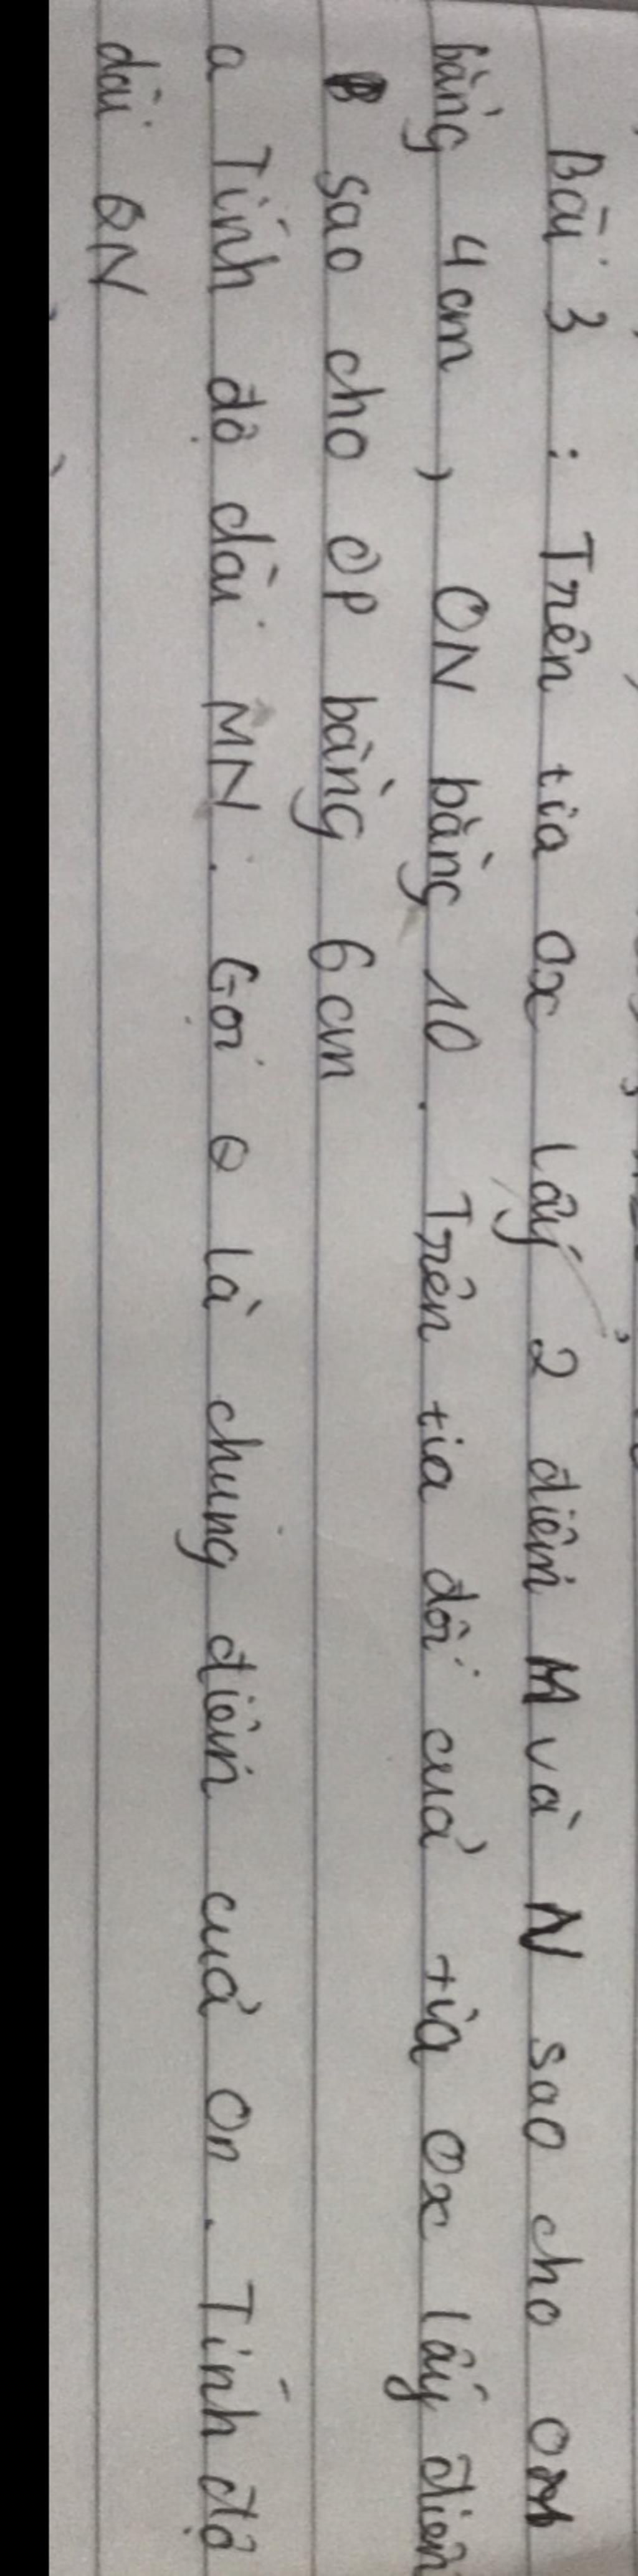 Bài 3 : Trên tia Ox lấy 2 điểm M và N sao cho OM
bằng 4cm , ON bằng 10 . Trên tia đối của tia Ox lấy điểm
sao cho OP bằng 6cm
a Tính độ dài MN . Gọi Q là chung điểm của On . Tính độ
dài QN